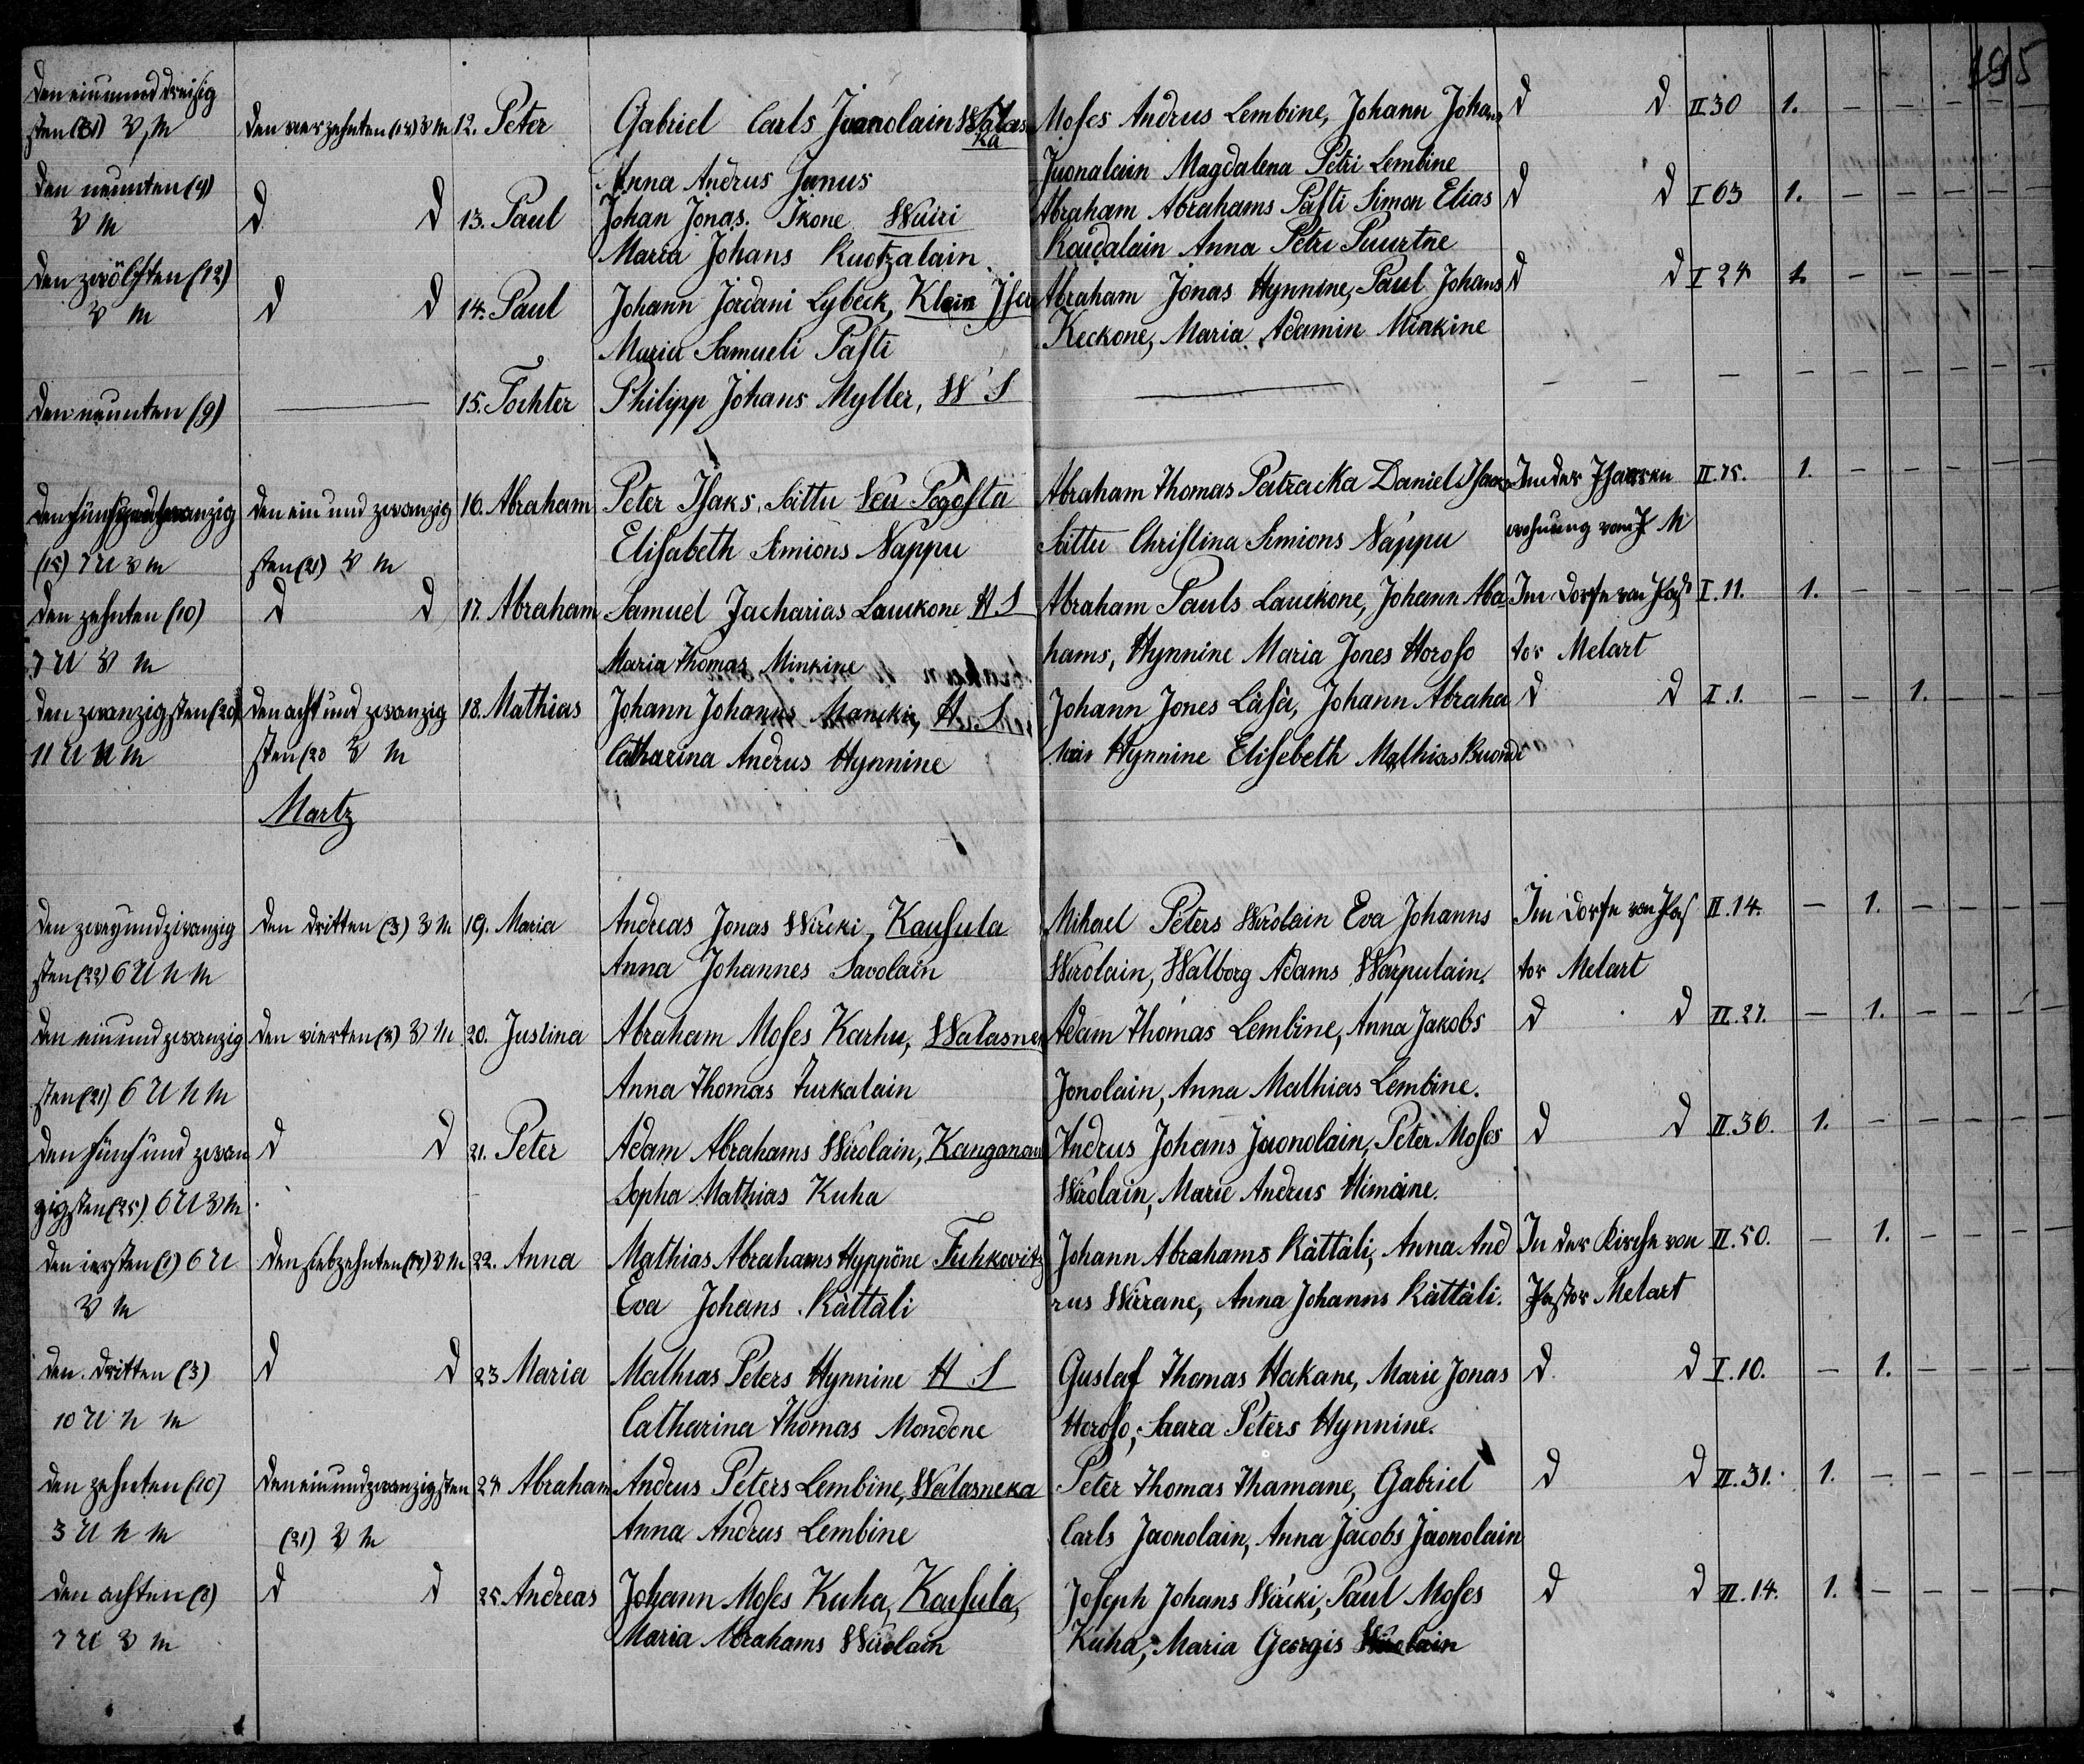 195
den einund dreißig
sten (31) V M den vierzehnten (14) V M 12. Peter Gabriel Carls Juonolain Walas Moses Andrus Lembine, Johann Johans d d II 30 1. – – – – –
ka
Anna Andrus Junus Juonalain Magdalena Petri Lembine
den neunten (9)
V M d d 13. Paul Johan Jonas. Ikone Wuiri Abraham Abrahams Pästi Simon Elias d d I 63 1. – – – – –
Maria Johans Kuotzalain Koudalain Anna Petri Puurtne
den zwölften (12)
V M d d 14. Paul Johann Jordani Lybeck, Klein Abraham Jonas Hynnine, Paul Johans d d I 24 1. – – – – –
Maria Samueli Pästi Keckone, Maria Adamin Minkine
den neunten (9) — 15. Tochter Philipp Johans Myller, W S — – – – – – – – – –
den fünfundzwanzig den ein und zwanzig 16. Abraham Peter Isaks. Säittu Neu Pogosta Abraham Thomas Patracka Daniel Isaaks In der Pfarren II.75. 1. – – – – –
(15) 7 U V M sten (21) V M Elisabeth Simions Nappu Säittu Christina Simions Näppu wohnung von P M
den zehnten (10) d d 17. Abraham Samuel Zacharias Lauckone H S Abraham Pauls Lauckone, Johann Aba Im Dorfe von Pas I. 11. 1. – – – – –
7 U V M Maria Thomas Minkine hams, Hynnine Maria Jones Horoso tor Melart
den zwanzigsten (20) den acht und zwanzig 18. Mathias Johann Johanns Manckin, H. S. Johann Jones Läsä, Johann Abraha d d I. 1. – – 1. – – –
11 U N M sten (28 V M Catharina Andrus Hynnine Hynnine Elisebeth Mathias
Martz
den zweyundzwanzig den dritten (3) V M 19. Maria Andreas Jonas Wircki, Kausula Mihael Peters Wirolain Eva Johanns Im Dorfe von Pas II. 14. – 1. – – – –
sten (22) 6 U N M Anna Johannes Savolain Wirolain, Walborg Adams Warpulain. tor Melart
den einundzwanzig den vierten (4) V M 20. Justina Abraham Moses Karhu, Walasne Adam Thomas Lembine, Anna Jakobs d d II. 27. – 1. – – – –
sten (21) 6 U N M Anna Thomas Turkalain Jonolain, Anna Mathias Lembine.
den fünf und zwan d d 21. Peter Adam Abrahams Wirolain, Kanganan Andrus Johans Juonolain, Peter Moses d d II. 36. 1. – – – – –
zigsten (25) 6 U V M Sopha Mathias Kuha Wirolain, Marie Andrus Himäine.
den iersten (1) 6 U den siebzehnten (17) V M 22. Anna Mathias Abrahams Hyppöne Tuhkovitz Johann Abrahams Kättäli, Anna And In der Kirche von II. 50. – 1. – – – –
V M Eva Johans. Kättäli rus Wirrane, Anna Johanns Kättäli. Pastor Melart
den dritten (3) d d 23 Maria Mathias Peters Hynnine H S Gustaf Thomas Hakane, Marie Jonas d d I. 10. – 1. – – – –
10 U N M Catharina Thomas Mondone Horoso, Saara Peters Hynnine.
den zehnten (10) den einundzwanzigsten 24 Abraham Andrus Peters Lembine, Walasneka Peter Thomas Thamane, Gabriel d d II. 31. 1. – – – – –
3 U N M (21) V M Anna Andrus Lembine Carls Juonolain, Anna Jacobs Juonolain
den achten (8) d d 25 Andreas Johann Moses Kuha, Kausula, Joseph Johans Wircki, Paul Moses d d II. 14. 1. – – – – –
7 U V M Maria Abrahams Wirolain Kuha, Maria Georgis Wirolain